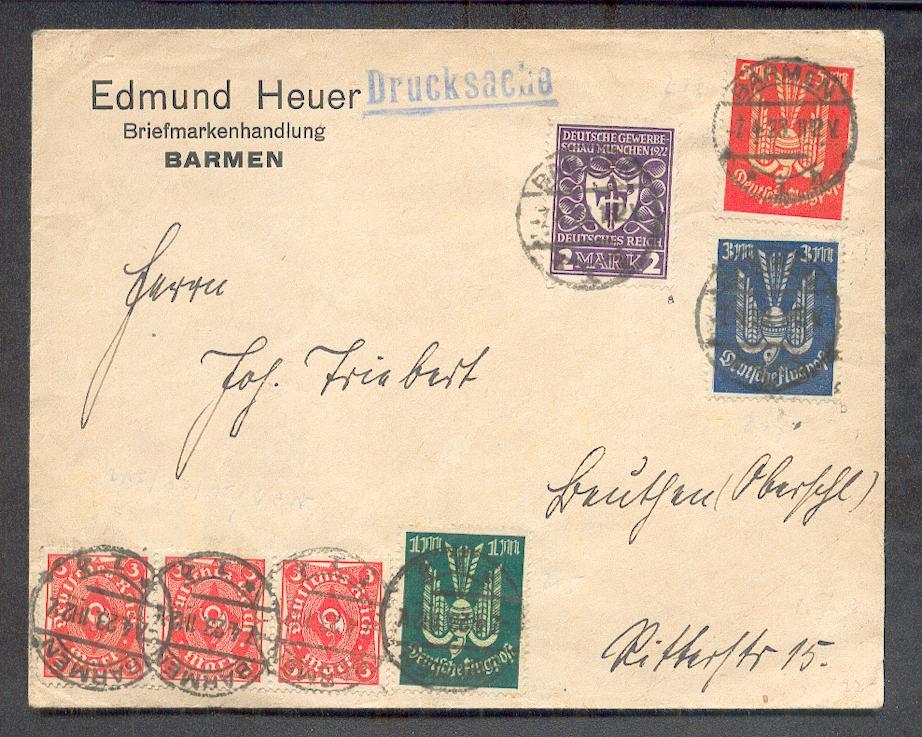 Edmund Heuer
Briefmarkenhandlung
BARMEN
Drucksache
DEUTSCHE GEWERBE-
SCHAU MUENCHEN 1922
DEUTSCHES REICH
2 MARK 2
BARMEN
Deutsche Flugpost
3M 3M
Deutsche Flugpost
Herrn
Joh. Triebert
Beuthen (Oberschl)
Ritterstr 15.
3 3
3 3
3 3
1M 1M
Deutsche Flugpost
BARMEN
BARMEN